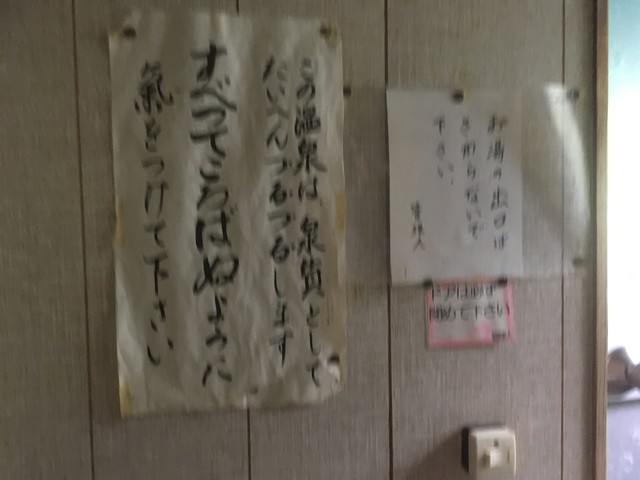 この温泉は、泉質として
たいへんつるつるします
すべってころばぬように
気をつけて下さい
お湯の出口は
さわらないで
下さい。
管理人
ドアは必ず
閉めて下さい